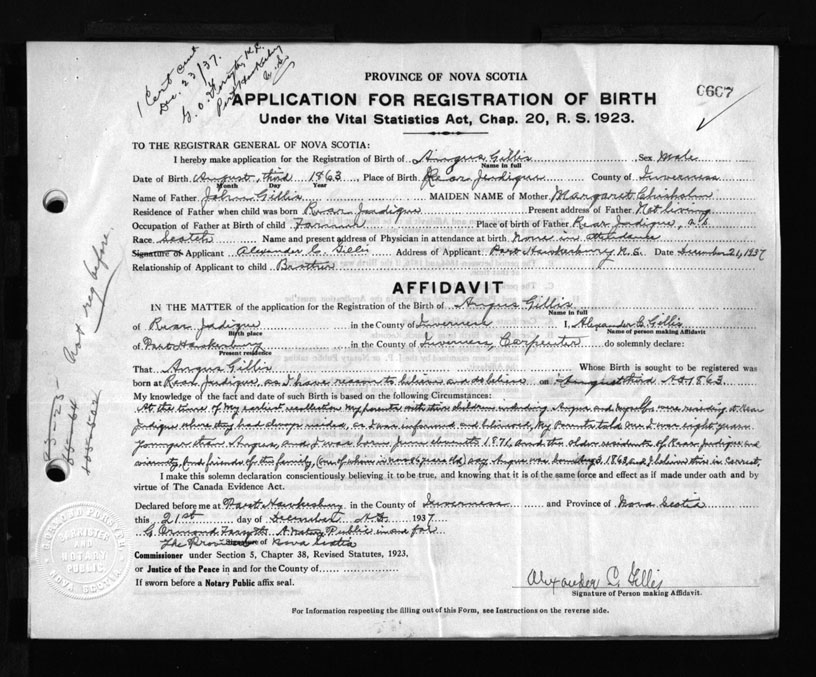 1 Cert
Dec. 23/37.
PROVINCE OF NOVA SCOTIA
0607
APPLICATION FOR REGISTRATION OF BIRTH
Under the Vital Statistics Act, Chap. 20, R. S. 1923.
TO THE REGISTRAR GENERAL OF NOVA SCOTIA:
I hereby make application for the Registration of Birth of Angus Gillis Sex Male
Name in full
Date of Birth August third 1863 Place of Birth Rear Judique County of Inverness
Month Day Year
Name of Father John Gillis MAIDEN NAME of Mother Margaret Chisholm
Residence of Father when child was born Rear Judique Present address of Father Not living
Occupation of Father at Birth of child Farmer Place of Birth of Father Rear Judique, N.S.
Race Scotch Name and present address of Physician in attendance at birth None in attendance
Signature of Applicant Alexander C. Gillis Address of Applicant Port Hawkesbury N.S. Date December 21, 1937
Relationship of Applicant to child Brother
AFFIDAVIT
IN THE MATTER of the application for the Registration of the Birth of Angus Gillis
Name in full
of Rear Judique in the County of Inverness I, Alexander C. Gillis
Birth place Name of person making Affidavit
of Port Hawkesbury in the County of Inverness, Carpenter do solemnly declare:
Present residence
That Angus Gillis Whose Birth is sought to be registered was
born at Rear Judique, as I have reason to believe and do believe on August third A.D. 1863
My knowledge of the fact and date of such Birth is based on the following Circumstances:
At the time of my earliest recollection my parents with their children including Angus and were residing at Rear
Judique where they had always resided, as I was informed and believed, My parents told me I was eight years
younger than Angus, and I was born June 1871, and the older residents of Rear Judique and
vicinity, and friends of the family, (one of whom is years old) say Angus was born Aug 3, 1863 and I believe this is correct.
I make this solemn declaration conscientiously believing it to be true, and knowing that it is of the same force and effect as if made under oath and by
virtue of The Canada Evidence Act.
Declared before me at Port Hawkesbury in the County of Inverness and Province of Nova Scotia
this 21st day of December A.D. 1937
G. Ormond Forsyth A Notary Public in and for
The Province of Nova Scotia
Commissioner under Section 5, Chapter 38, Revised Statutes, 1923,
or Justice of the Peace in and for the County of
If sworn before a Notary Public affix seal.
Alexander C. Gillis
Signature of Person making Affidavit.
For Information respecting the filling out of this Form, see Instructions on the reverse side.
Not reg before
NOTARY
PUBLIC
NOVA SCOTIA